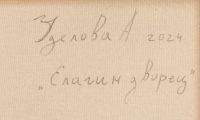 Уделова А 2024
"Елагин дворец"